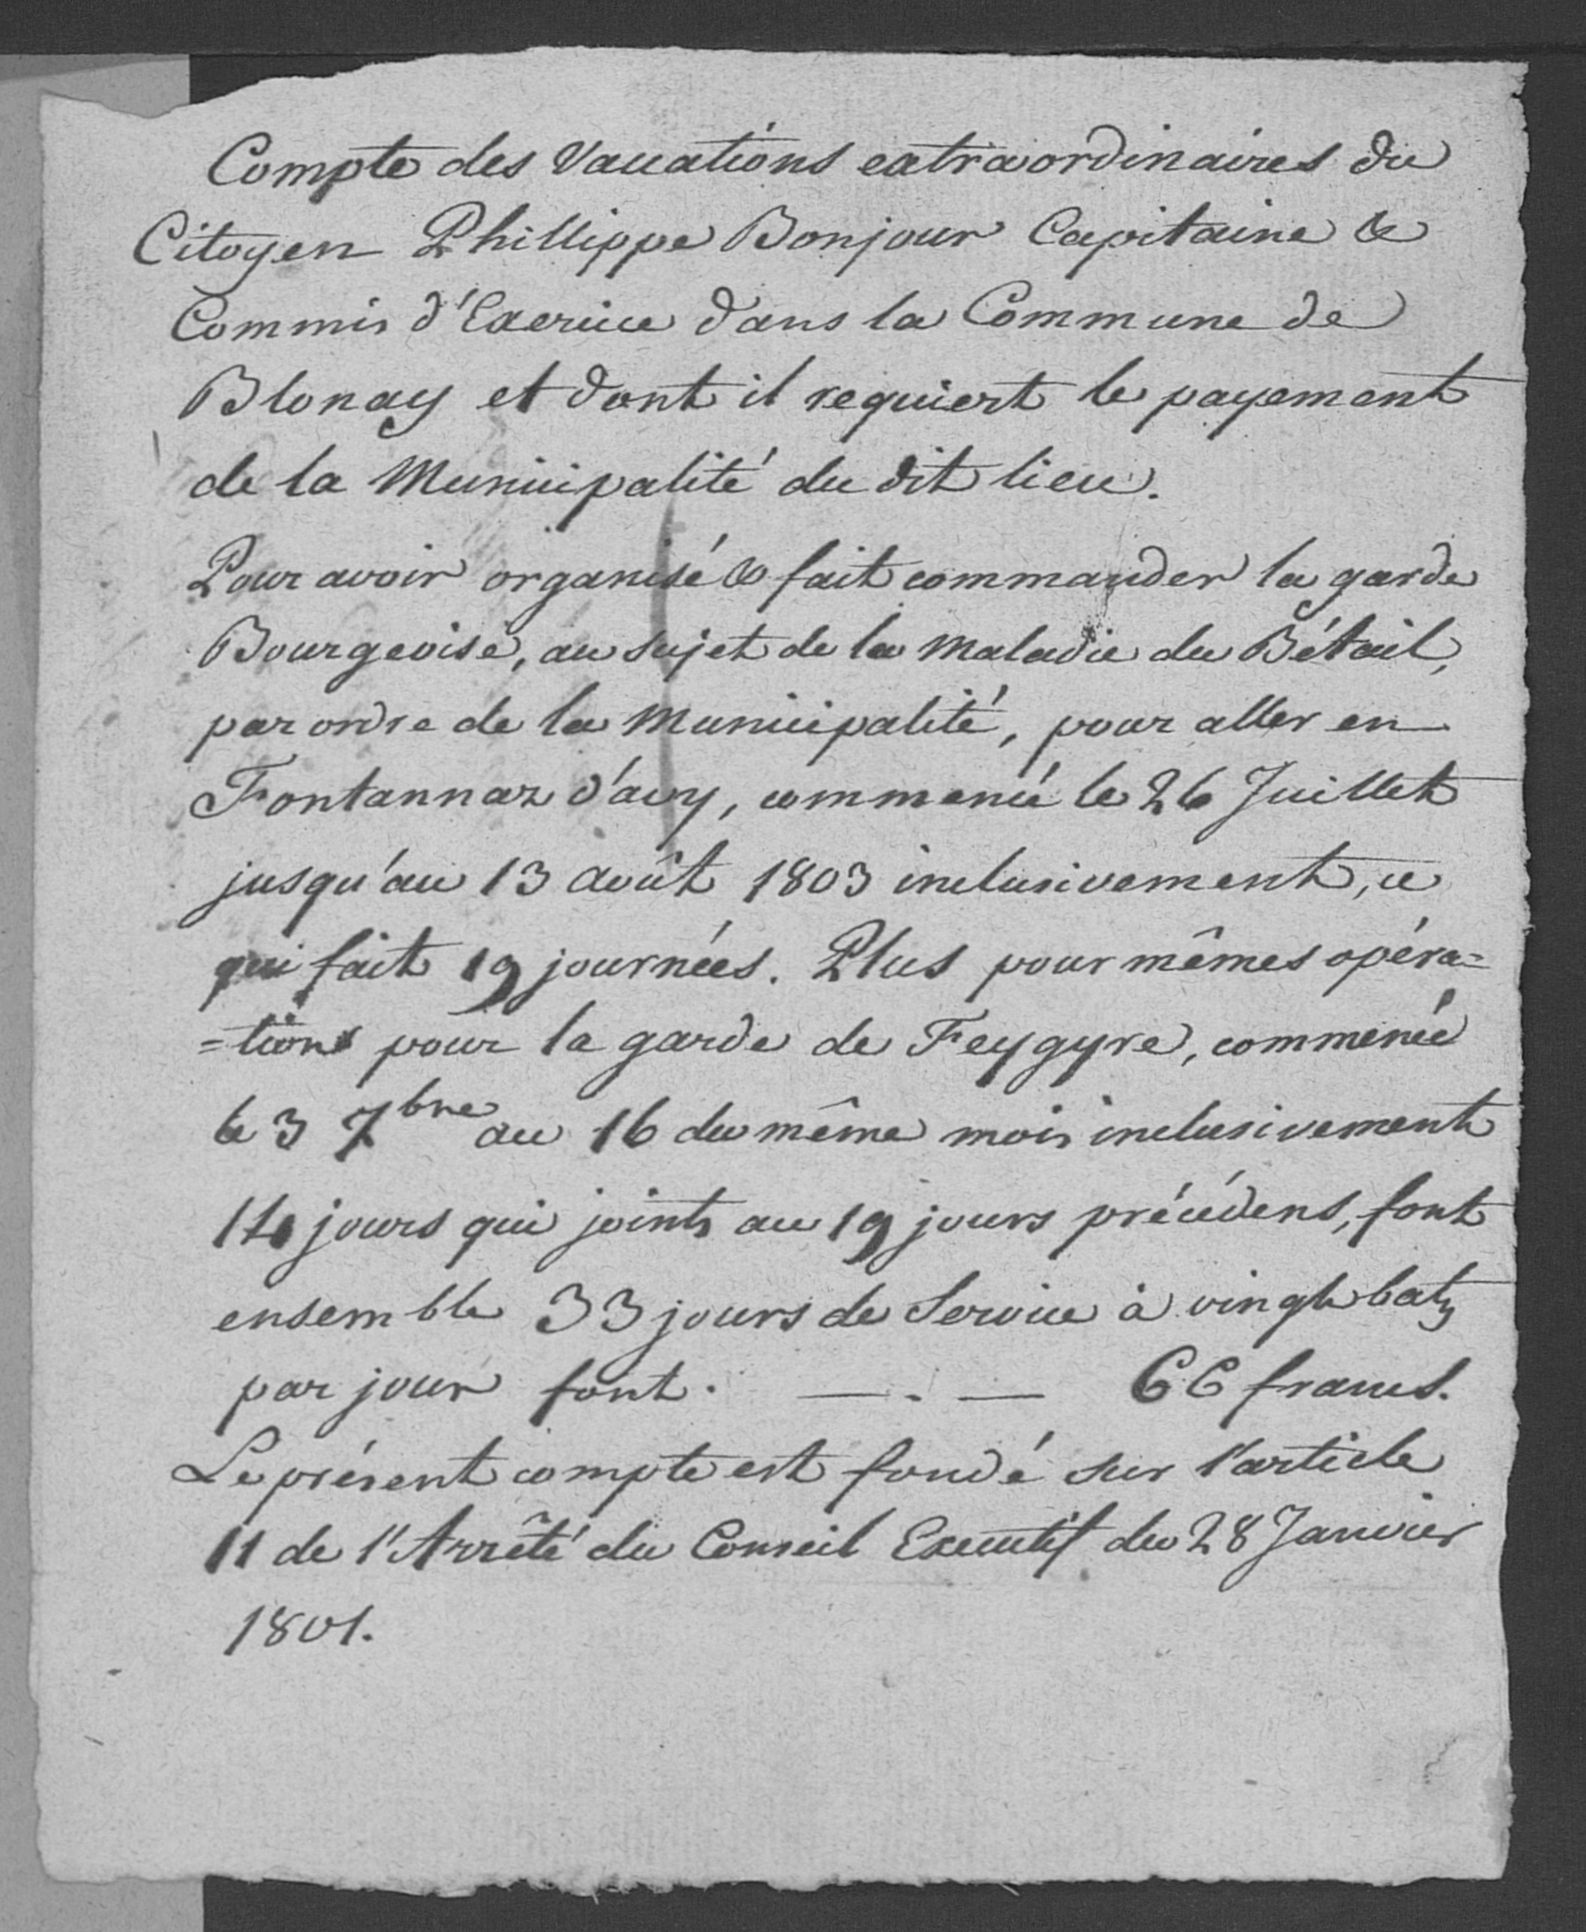 Compte des Vacations extraordinaires du
Citoyen Phillippe Bonjour Capitaine &
Commis d'Exercice dans la Commune de
Blonay et dont il requiert le payement
de la Municipalité du dit lieu.
Pour avoir organisé & fait commander la garde
Bourgeoise, au sujet de la Maladie du Bétail,
par ordre de la Municipalité, pour aller en
Fontannaz d'avy, commencé le 26 Juillet
jusqu'au 13 Août 1803 inclusivement, ce
qui fait 19 journées. Plus pour mêmes opéra=
=tions pour la garde de Feygyre, commencée
le 3 7bre au 16 du même mois inclusivement
14 jours qui joints au 19 jours précédens, font
ensemble 33 jours de Service à vingt batz
par jour font. — . — 66 francs.
Le présent compte est fondé sur l'article
11 de l'Arrêté du Conseil Executif du 28 Janvier
1801.